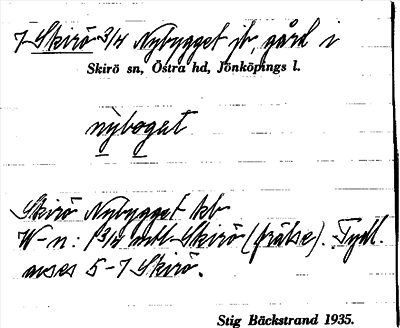 7 Skirö 3/4 Nybygget jb, gård i
Skirö sn, Östra hd, Jönköpings l.
nỳbogat
Skirö Nybygget kb
W-n: 3/4 mtl Skirö (frälse). Tydl.
anses 5-7 Skirö.
Stig Bäckstrand 1935.